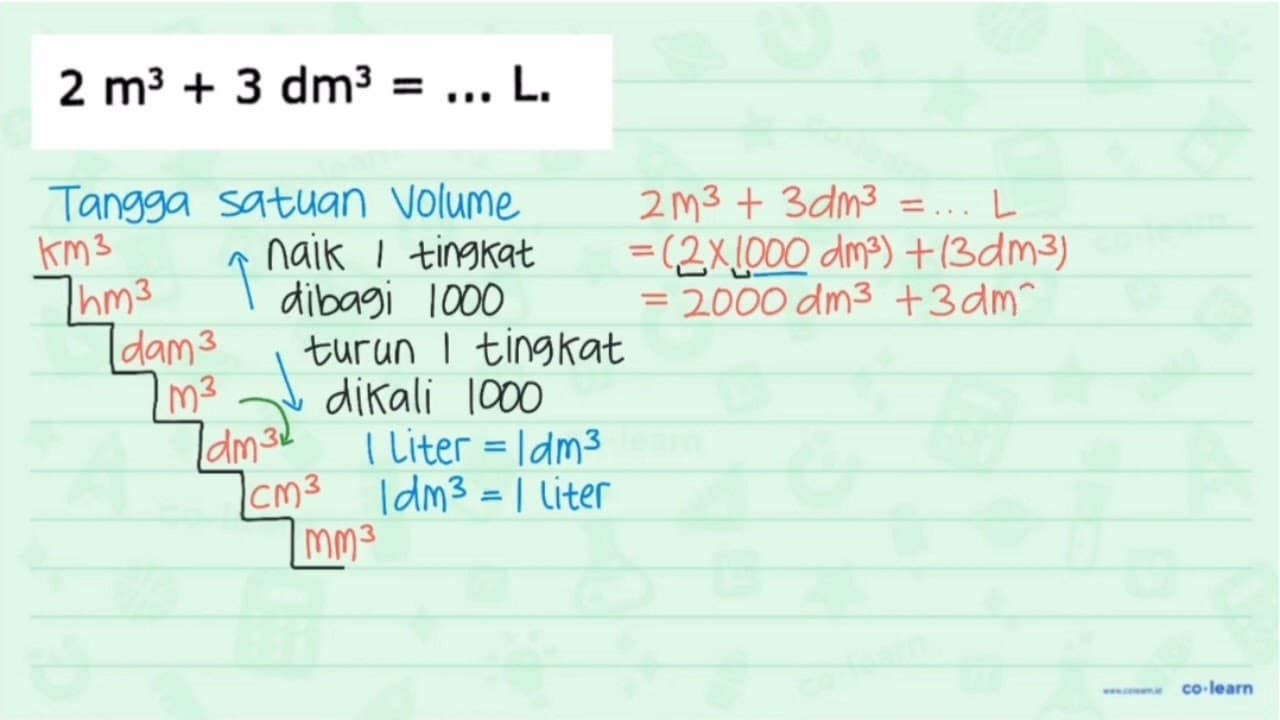 2 m³ + 3 dm³ = ... L.
Tangga satuan Volume
km³
hm³
dam³
m³
dm³
cm³
mm³
naik 1 tingkat
dibagi 1000
turun 1 tingkat
dikali 1000
1 Liter = 1dm³
1dm³ = 1 liter
2m³ + 3dm³ = ... L
= (2x1000 dm³) + (3dm³)
= 2000 dm³ + 3dm
www.colearn.id co·learn